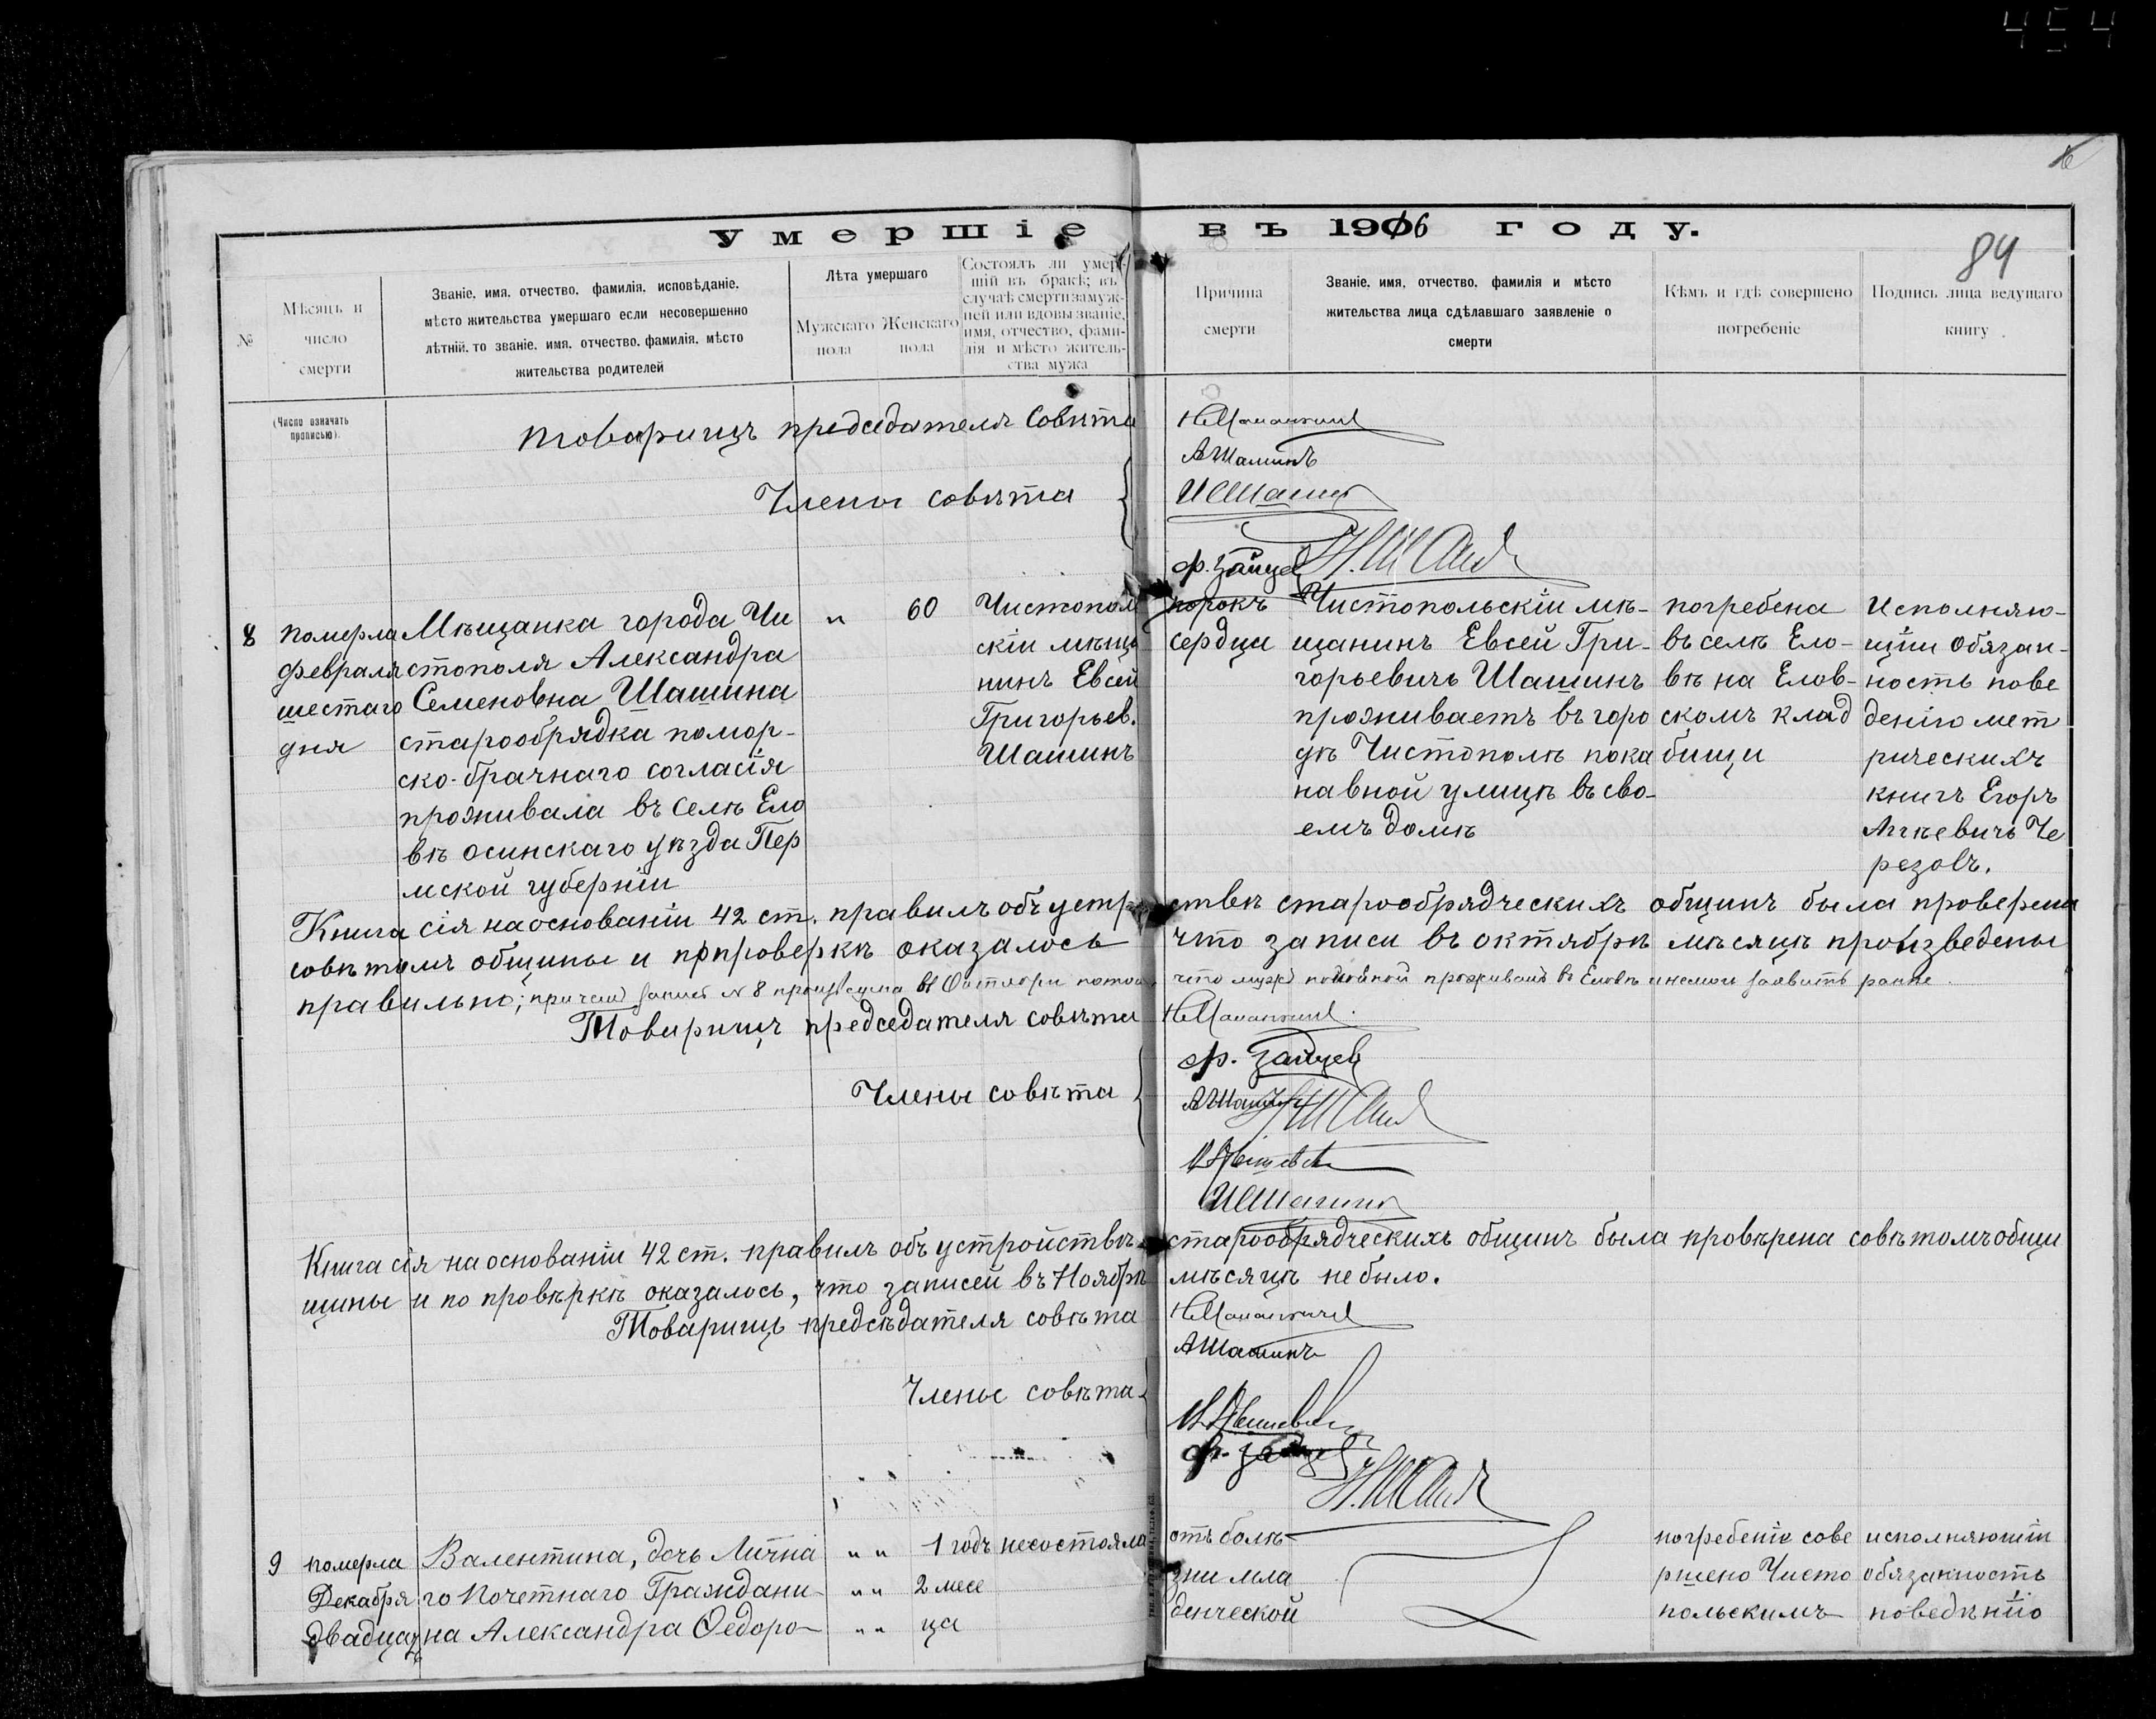 454
Умершіе въ 1906 году.
84
№
Мѣсяцъ и
число
смерти
Званіе, имя, отчество, фамилія, исповѣданіе,
мѣсто жительства умершаго если несовершенно
лѣтній, то званіе, имя, отчество, фамилія, мѣсто
жительства родителей
Лѣта умершаго
Мужскаго
пола
Женскаго
пола
Состоялъ ли умер-
шій въ бракѣ; въ
случаѣ смерти замуж-
ней или вдовы званіе,
имя, отчество, фами-
лія и мѣсто житель-
ства мужа
Причина
смерти
Званіе, имя, отчество, фамилія и мѣсто
жительства лица сдѣлавшаго заявленіе о
смерти
Кѣмъ и гдѣ совершено
погребеніе
Подпись лица ведущаго
книгу
(Число означать
прописью).
товарищъ председателя Совѣта
Члены совѣта
АШашинъ
ИСШашин
Ф. Зайцев
8
померла
февраля
шестаго
дня
Мѣщанка города Чи
стополя Александра
Семеновна Шашина
старообрядка помор-
ско-брачнаго согласія
проживала въ селѣ Ело
вѣ осинскаго уѣзда Пер
мской губерніи
"
60
Чистопол
скій мѣща
нинъ Евсей
Григорьев.
Шашинъ
порокъ
сердца
Чистопольскій мѣ-
щанинъ Евсей Гри-
горьевичъ Шашинъ
проживаетъ въ горо
дѣ Чистополѣ пока
навной улицѣ въ сво-
емъ домѣ
погребена
въ селѣ Ело-
вѣ на Елов-
скомъ клад
бищи
Исполняю-
щій обязан-
ность пове
денію мет
рическихъ
книгъ Егоръ
Че
резовъ.
Книга сія на основаніи 42 ст. правилъ объ устройствѣ старообрядческихъ общинъ была проверена
совѣтомъ общины и при проверкѣ оказалось что записи въ октябрѣ мѣсяцѣ произведены
правильно; причем запись N 8 произведена въ Октябри потому что мужъ покойной проживалъ в Еловѣ и немогъ заявить ранее.
Товарищъ председателя совѣта
Члены совѣта
Ф. Зайцев
АШашинъ
ИСШашин
Книга сія на основаніи 42 ст. правилъ объ устройствѣ старообрядческихъ общинъ была провѣрена совѣтомъ общи
щины и по провѣркѣ оказалось, что записей въ Ноябрѣ мѣсяцѣ не было.
Товарищъ предсѣдателя совѣта
АШашинъ
Члены совѣта
Ф. Зайцев
9
померла
Декабря
двадцат
Валентина, дочь Лична
го Почетнаго Граждани-
на Александра Ѳедоро-
" "
" "
" "
1 годъ
2 месе
ца
несостояла
отъ болѣ-
зни мла
денческой
погребеніе сове
ршено Чисто
польскимъ
исполняющій
обязанность
поведѣнію